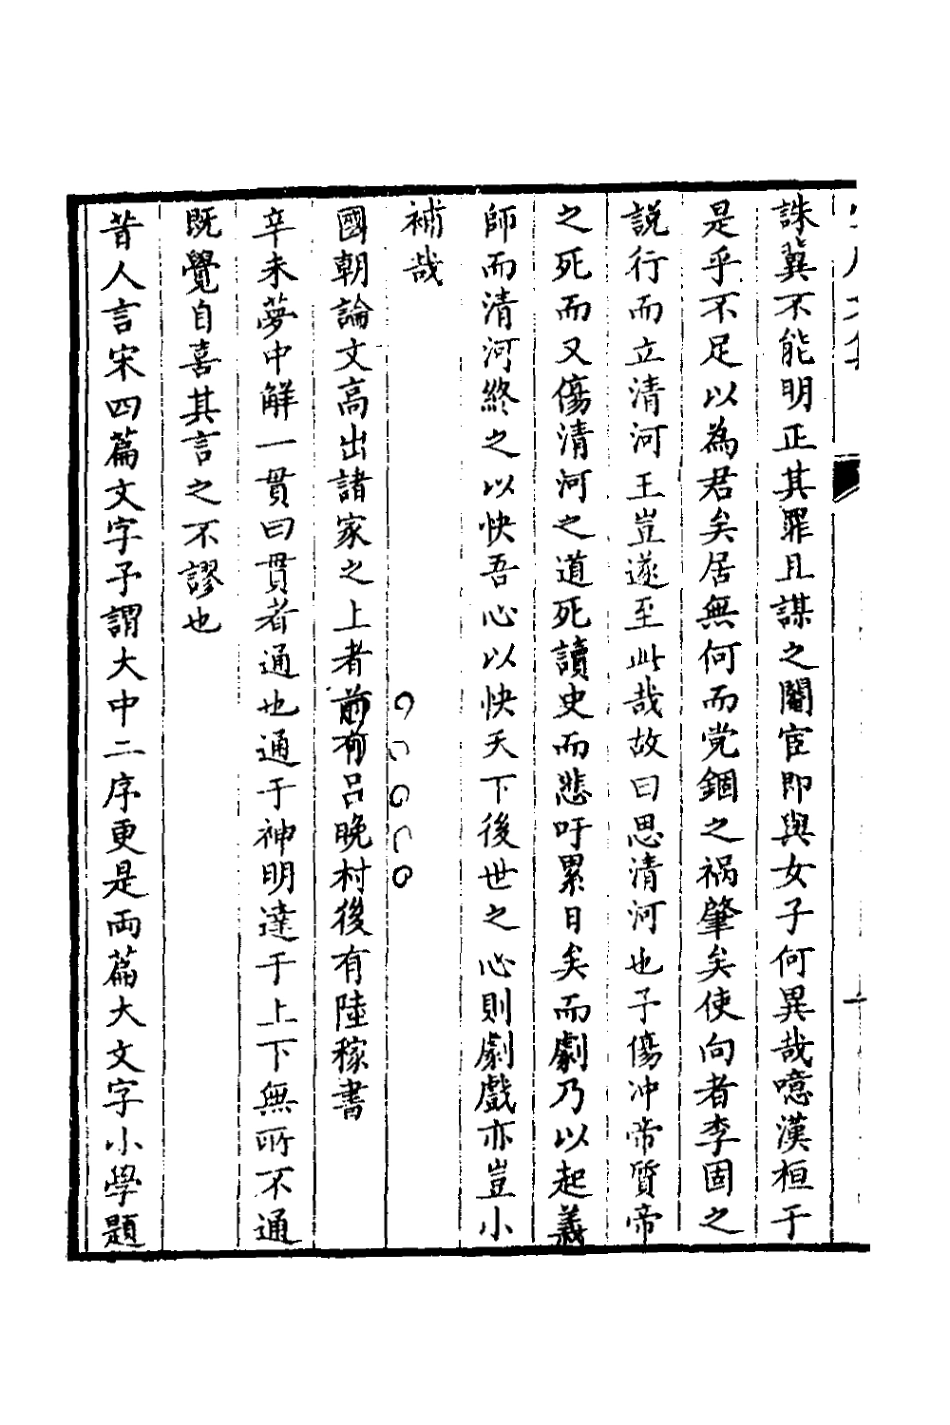 誅冀不能明正其罪且謀之閹宦即與女子何異哉噫漢桓于
是乎不足以為君矣居無何而党錮之祸肇矣使向者李固之
説行而立清河王豈遂至此哉故曰思清河也予傷冲帝質帝
之死而又傷清河之道死讀史而悲吁累日矣而劇乃以起義
師而清河終之以快吾心以快天下後世之心則劇戲亦豈小
補哉
國朝論文高出諸家之上者前有呂晚村後有陸稼書
辛未夢中解一貫曰貫者通也通于神明達于上下無所不通
既覺自喜其言之不謬也
昔人言宋四篇文字予謂大中二序更是两篇大文字小學題